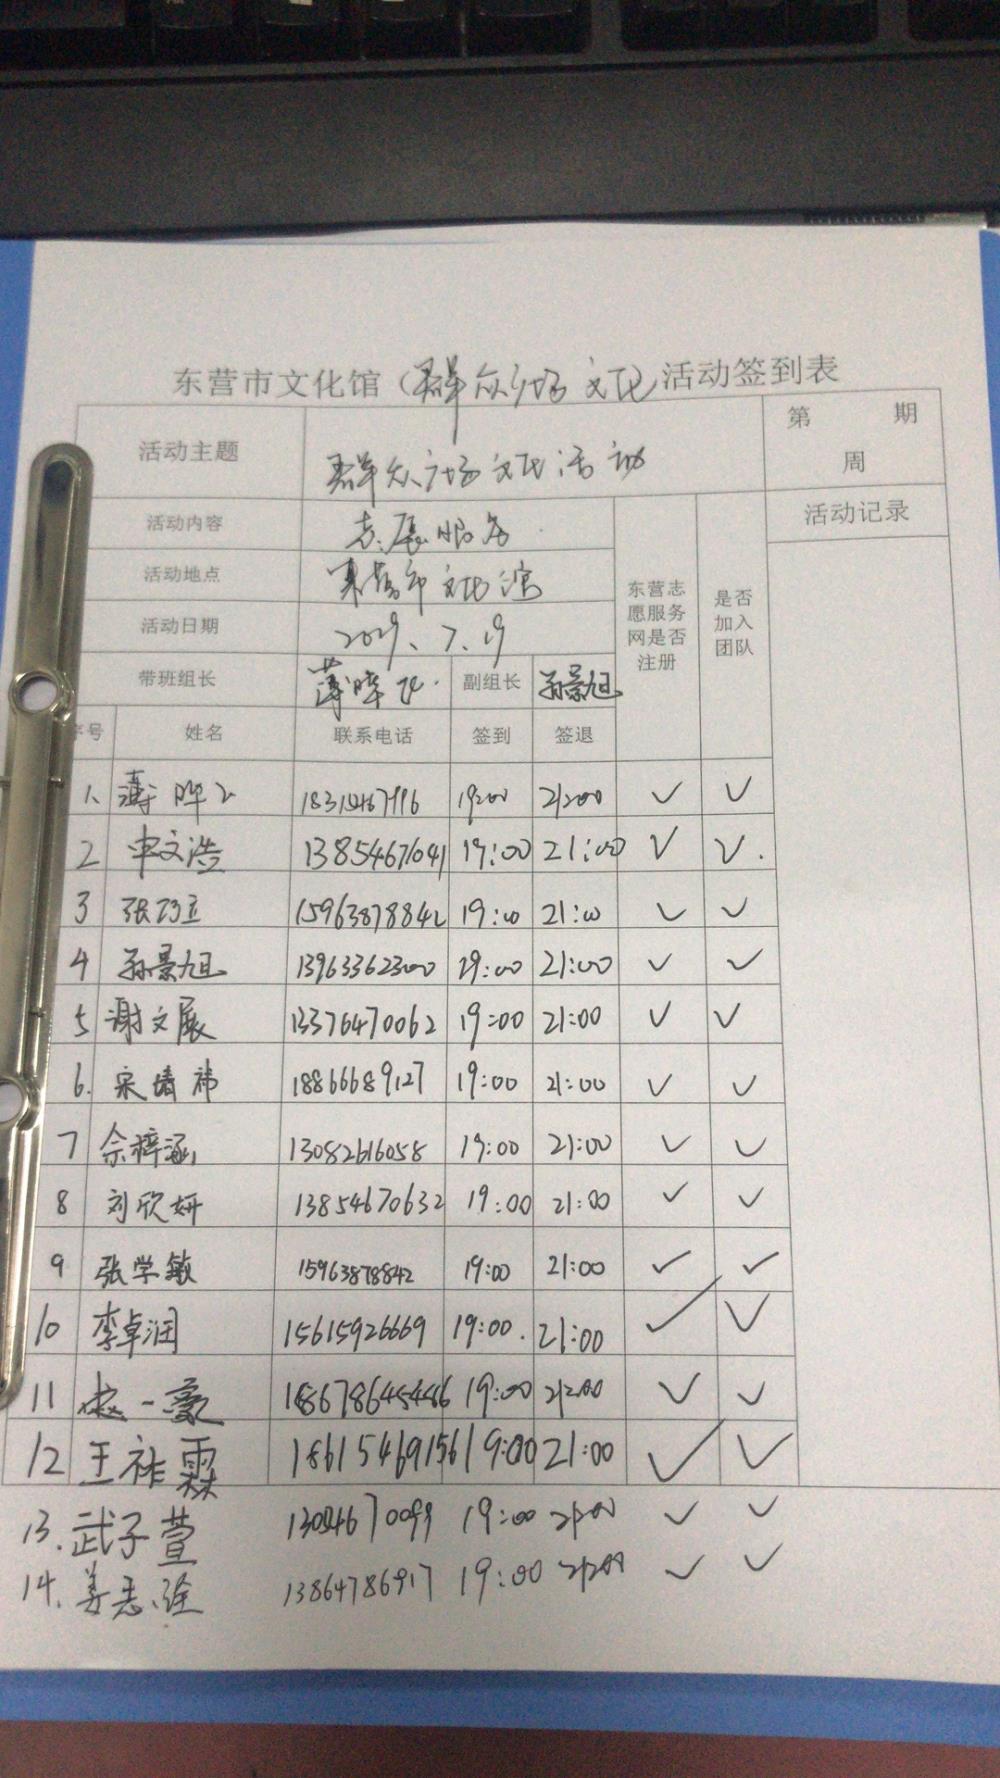 东营市文化馆（群众广场文化）活动签到表
活动主题 群众广场文化活动 第 期
周
活动内容 志愿服务 东营志愿服务网是否注册 是否加入团队 活动记录
活动地点 东营市文化馆
活动日期 2019.7.19
带班组长 薄晔 副组长 孙景旭
序号 姓名 联系电话 签到 签退
1、 薄晔 19:00 21:00 ✓ ✓
2 申文浩 13854671041 19:00 21:00 ✓ ✓.
3 张乃立 15963878842 19:00 21:00 ✓ ✓
4 孙景旭 13963362300 19:00 21:00 ✓ ✓
5 谢文展 13376470062 19:00 21:00 ✓ ✓
6. 宋靖祎 18866689127 19:00 21:00 ✓ ✓
7 佘梓涵 13082616058 19:00 21:00 ✓ ✓
8 刘欣妍 13854670632 19:00 21:00 ✓ ✓
9 张学敏 15963878842 19:00 21:00 ✓ ✓
10 李卓润 15615926669 19:00. 21:00 ✓ ✓
11 赵一豪 19:00 21:00 ✓ ✓
12 王祚霖 18615469156 19:00 21:00 ✓ ✓
13. 武子萱 19:00 21:00 ✓ ✓
14. 姜志 13864786917 19:00 21:00 ✓ ✓